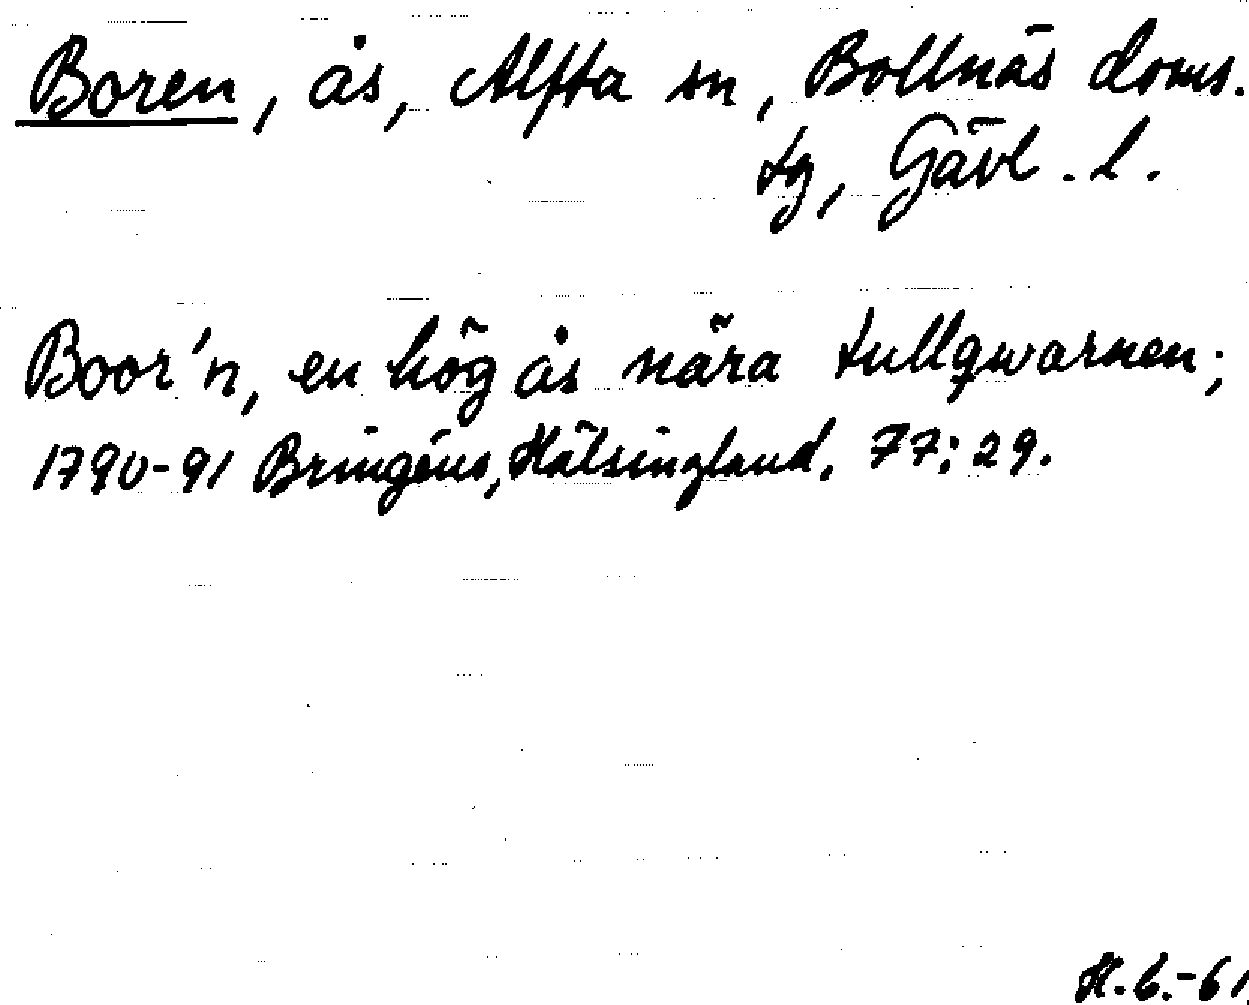 Boren, ås, Alfta sn, Bollnäs doms.
tg, Gävl. l.
Boor'n, en hög ås nära tullqwarnen;
1790-91 Bringéus, Hälsingland, 77:29.
H.b.-61